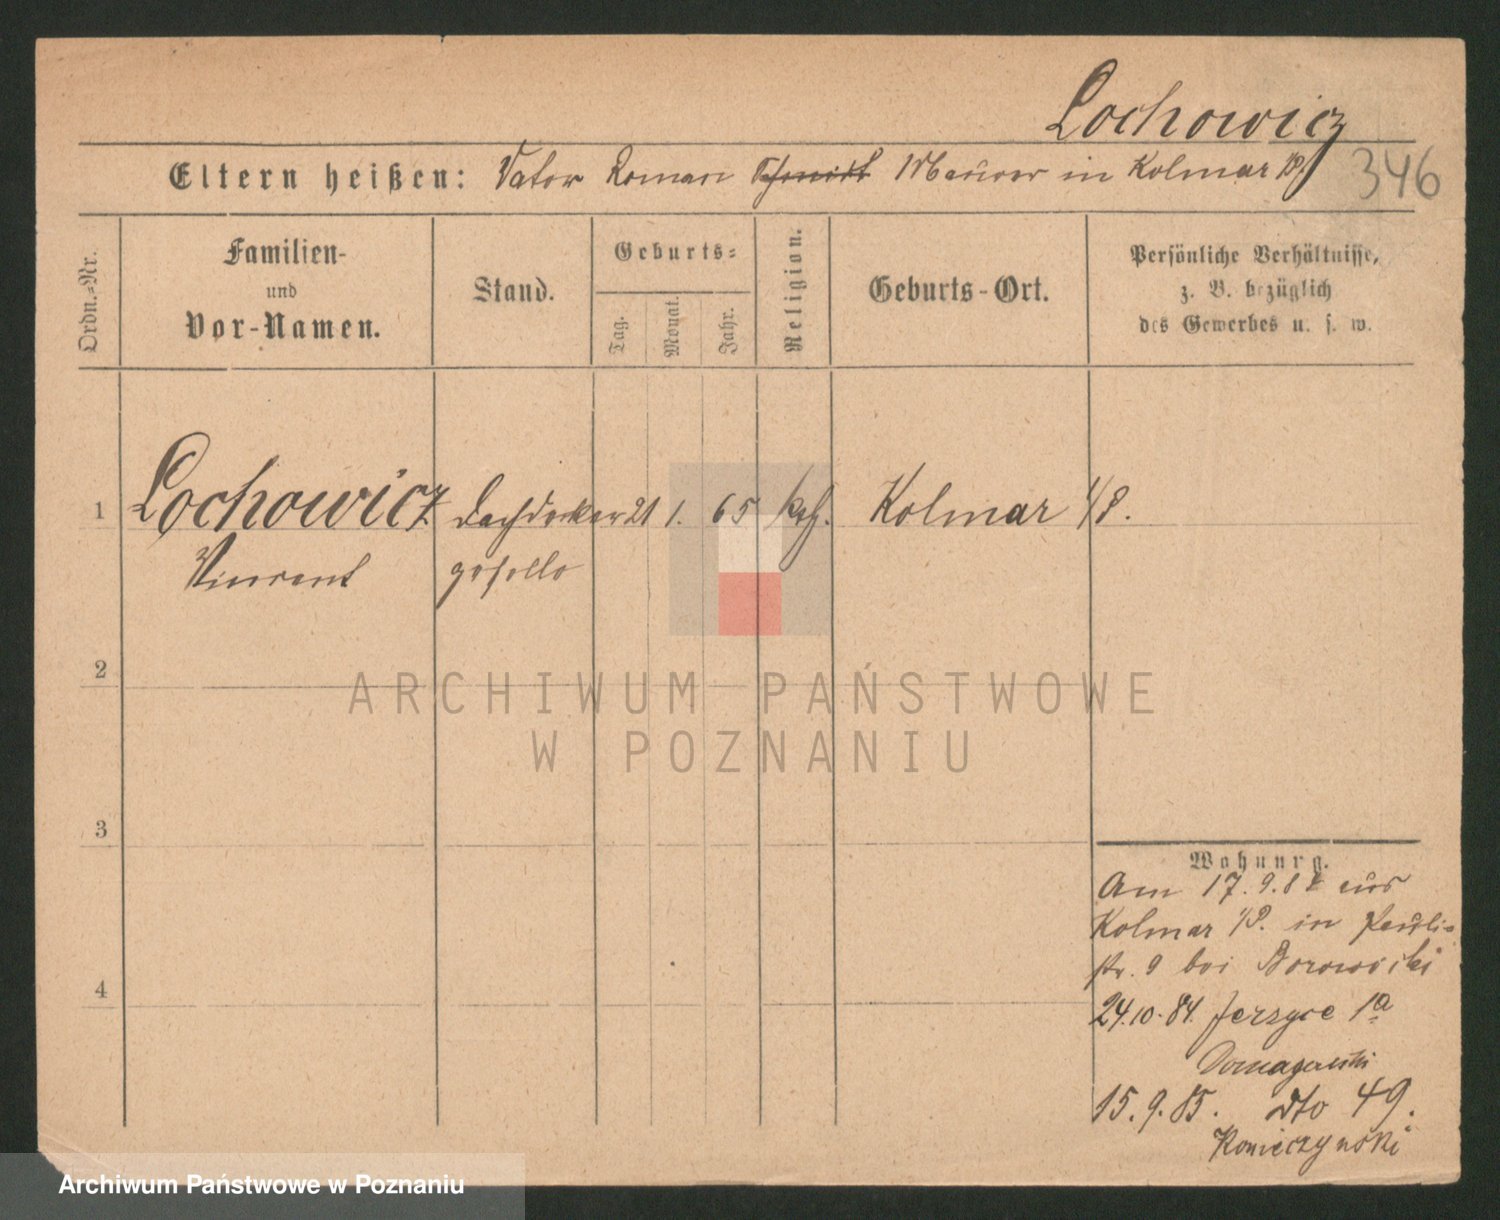 Lochowicz
Eltern heißen: Vater Roman Schmidt Maurer in Kolmar i/P.
346
Ordn.-Nr.
Familien-
und
Vor-Namen.
Stand.
Geburts-
Tag.
Monat.
Jahr.
Religion.
Geburts-Ort.
Persönliche Verhältnisse,
z. B. bezüglich
des Gewerbes u. s. w.
1 Lochowicz Dachdecker 21 1. 65 kath. Kolmar i/P.
Vincent geselle
2
3
4
ARCHIWUM PAŃSTWOWE
W POZNANIU
Wohnung.
Am 17.9.84 aus
Kolmar i/P. in Pauli-
str. 9 bei Borowicki
24.10.84. Jerzyce 1a
15.9.85. dto 49.
Konieczynski
Archiwum Państwowe w Poznaniu